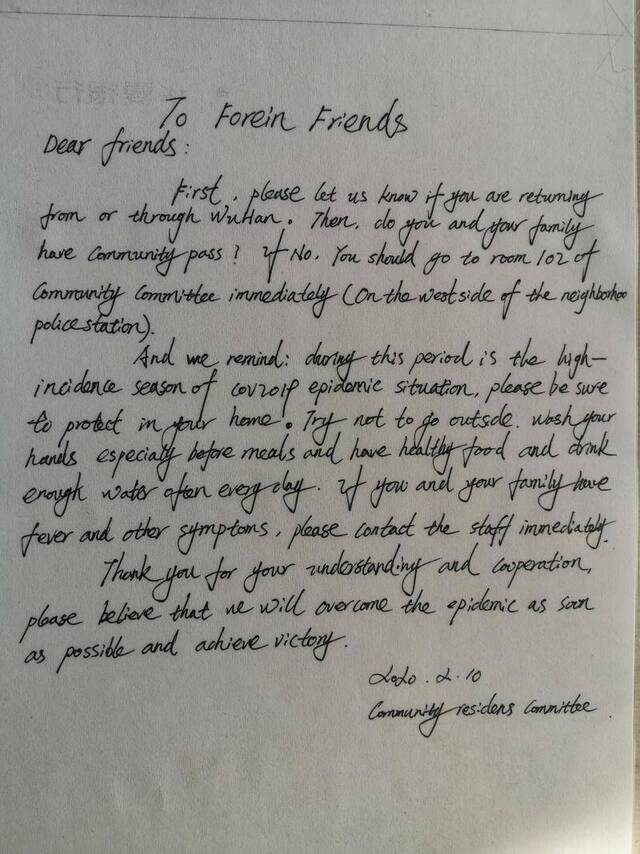 To Forein Friends
Dear friends:
First, please let us know if you are returning
from or through WuHan. Then, do you and your family
have Community pass? if No. You should go to room 102 of
Community Committee immediately (On the west side of the neighborhoo
police station).
And we remind: during this period is the high-
incidence season of cov2019 epidemic situation, please be sure
to protect in your home. Try not to go outside. wash your
hands especially before meals and have healthy food and drink
enough water often every day. if you and your family have
fever and other symptoms, please contact the staff immediately.
Thank you for your understanding and cooperation,
please believe that we will overcome the epidemic as soon
as possible and achieve victory.
2020.2.10
Community residens Committee.